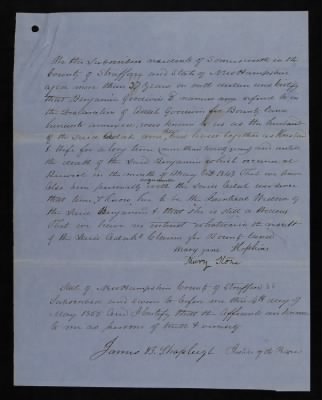 We the Subscribers residents of Somersworth in the
County of Strafford and State of New Hampshire
aged more than 37 years on oath declare and certify
that Benjamin Goodwin
the Declaration of Goodwin for Bounty Land
was known to us as the husband
of the said and that lived together as Husband
& Wife for a long time and until
the death of the Said Benjamin which occurred at
Berwick in the month of May 1843 That we have
also been personally acquainted with the Said since
that time, & know her to be the Lawful Widow of
the Said Benjamin & that She is still a Widow
That we have no interest in the result
of the Said Claim for Bounty Land
Mary Jane Hopkins
Mary
State of New Hampshire County of Strafford SS
Subscribed and Sworn to before me this day of
May 1855 And I Certify that the affiants are known
to me as persons of truth & veracity
James B. Shapleigh Justice of the Peace